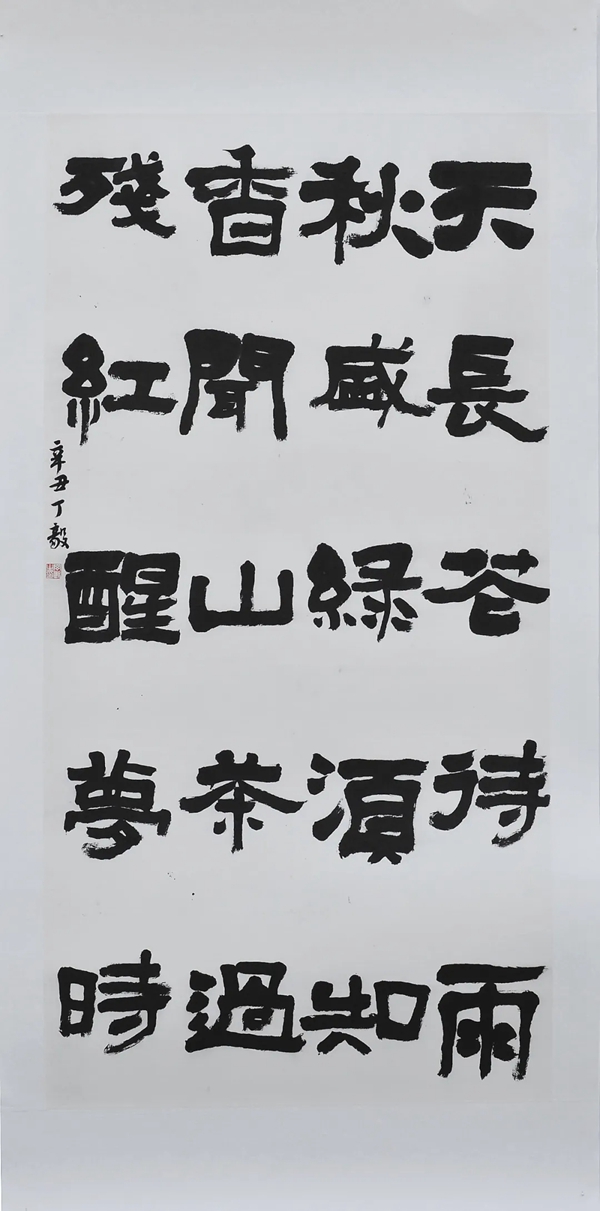 天長花待雨
秋盛綠湏知
香聞山茶過
殘紅醒夢時
辛丑丁毅